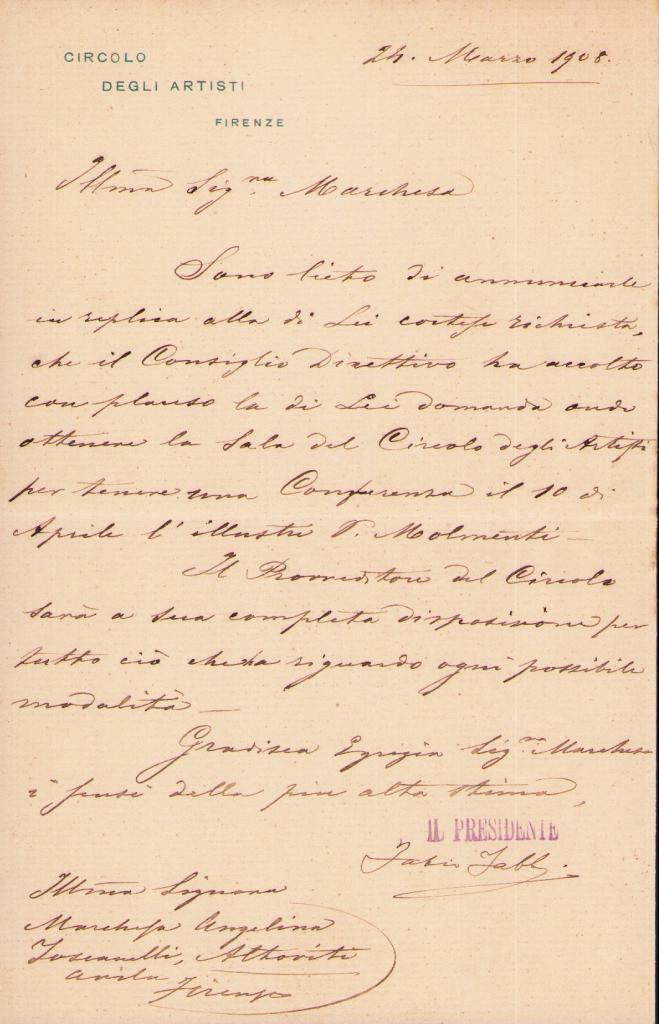 CIRCOLO
DEGLI ARTISTI
FIRENZE
24. Marzo 1908.
Illma Sig.ra Marchesa
Sono lieto di annunciarle
in replica alla di Lei cortese richiesta,
che il Consiglio Direttivo ha accolto
con plauso la di Lei domanda onde
ottenere la Sala del Circolo degli Artisti
per tenere una Conferenza il 10 di
Aprile l'illustre P. Molmenti —
Il Provveditore del Circolo
sarà a sua completa disposizione per
tutto ciò che ha riguardo ogni possibile
modalità —
Gradisca Egregia Sig.ra Marchesa
i sensi della più alta stima,
IL PRESIDENTE
Fabio Fabbi.
Illma Signora
Marchesa Angelina
Toscanelli, Altoviti
Avila
Firenze